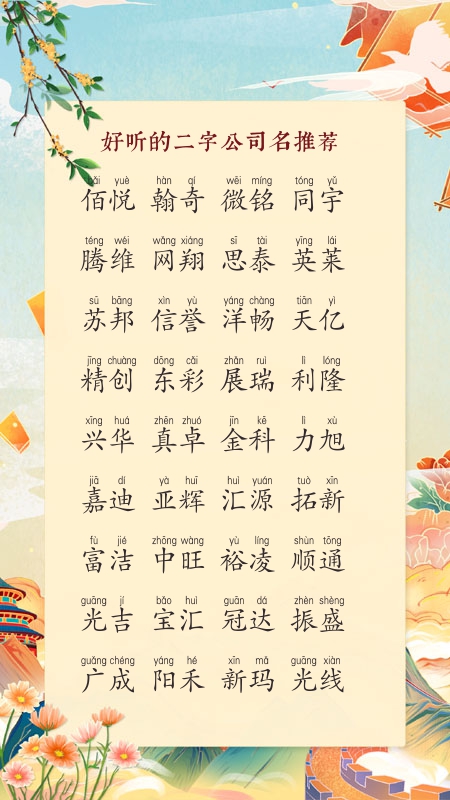 好听的二字公司名推荐
bǎi yuè hàn qí wēi míng tóng yǔ
佰悦 翰奇 微铭 同宇
téng wéi wǎng xiáng sī tài yīng lái
腾维 网翔 思泰 英莱
sū bāng xìn yù yáng chàng tiān yì
苏邦 信誉 洋畅 天亿
jīng chuàng dōng cǎi zhǎn ruì lì lóng
精创 东彩 展瑞 利隆
xīng huá zhēn zhuó jīn kē lì xù
兴华 真卓 金科 力旭
jiā dí yà huī huì yuán tuò xīn
嘉迪 亚辉 汇源 拓新
fù jié zhōng wàng yù líng shùn tōng
富洁 中旺 裕凌 顺通
guāng jí bǎo huì guān dá zhèn shèng
光吉 宝汇 冠达 振盛
guǎng chéng yáng hé xīn mǎ guāng xiàn
广成 阳禾 新玛 光线